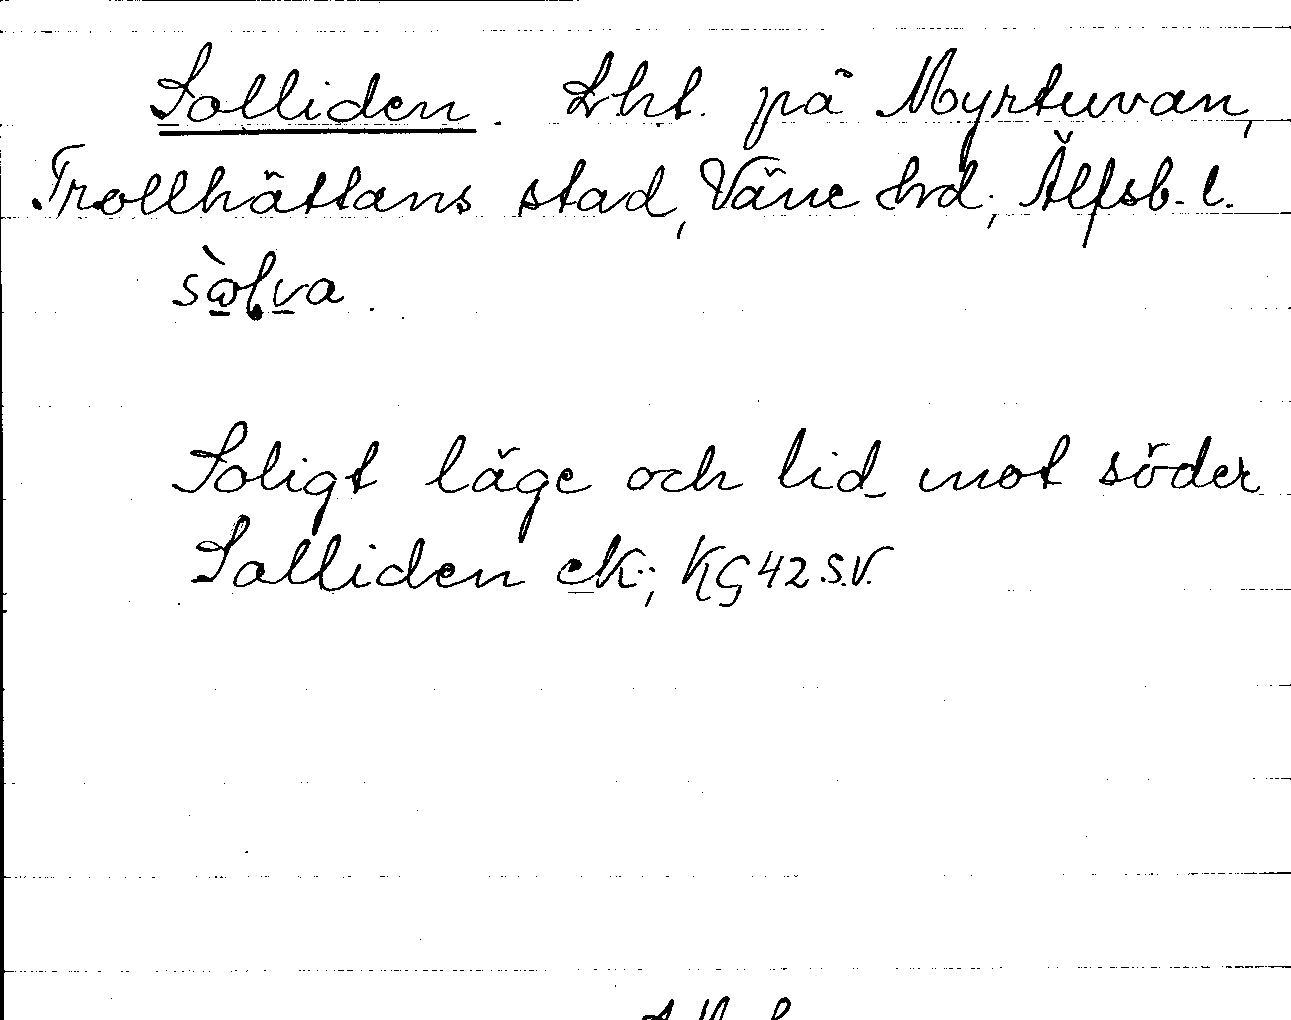 Solliden. Lht. på Myrtuvan,
Trollhättans stad, Väne hd; Älfsb. l.
Soligt läge och lid mot söder
Solliden ek.; KG42 S.V.